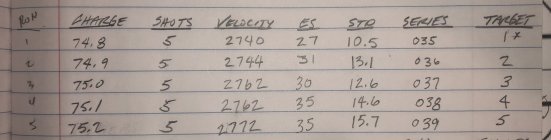 RUN CHARGE SHOTS VELOCITY ES STD SERIES TARGET
1 74.8 5 2740 27 10.5 035 1*
2 74.9 5 2744 31 13.1 036 2
3 75.0 5 2762 30 12.6 037 3
4 75.1 5 2762 35 14.6 038 4
5 75.2 5 2772 35 15.7 039 5